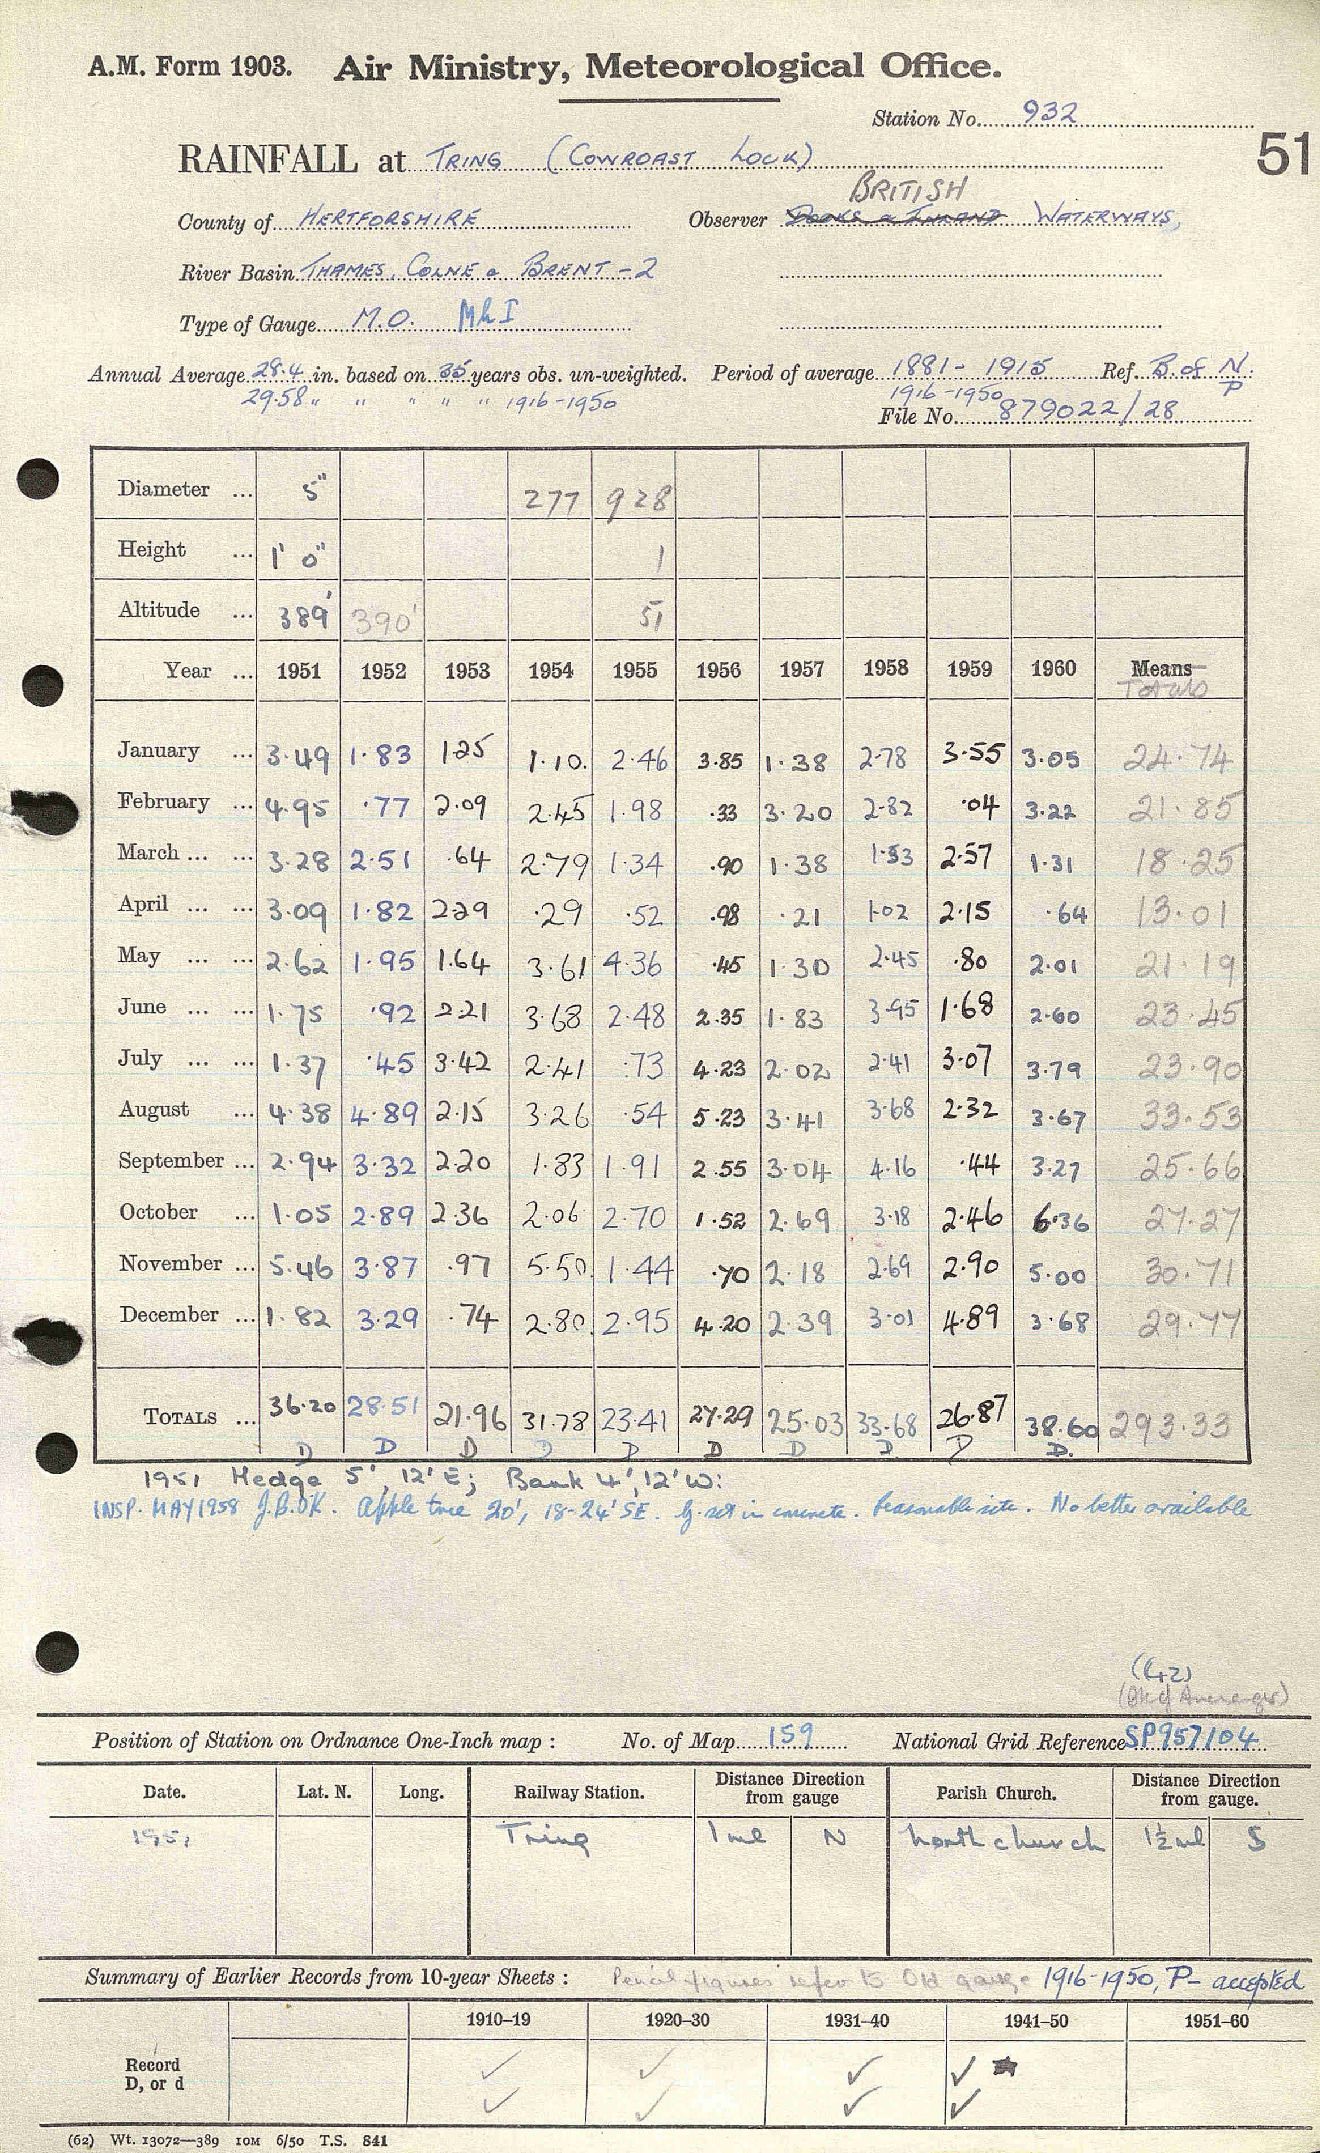 A.M. Form 1903. Air Ministry, Meteorological Office.
Station No. 932
51
RAINFALL at TRING (COWROAST LOCK)
BRITISH
County of HERTFORSHIRE Observer DOCKS & INLAND WATERWAYS,
River Basin THAMES, COLNE & BRENT - 2
Type of Gauge M.O. Mk I
Annual Average 28.4 in. based on 35 years obs. un-weighted. Period of average 1881 - 1915 Ref. B. of N.
29.58 " " " " " 1916-1950 1916-1950 P
File No. 879022/28
Diameter ... 5" 277 928
Height ... 1' 0" 1
Altitude ... 389' 390' 51
Year ... 1951 1952 1953 1954 1955 1956 1957 1958 1959 1960 Means
Totals
January ... 3.49 1.83 1.25 1.10. 2.46 3.85 1.38 2.78 3.55 3.05 24.74
February ... 4.95 .77 2.09 2.45 1.98 .33 3.20 2.82 .04 3.22 21.85
March ... ... 3.28 2.51 .64 2.79 1.34 .90 1.38 1.53 2.57 1.31 18.25
April ... ... 3.09 1.82 2.29 .29 .52 .98 .21 1.02 2.15 .64 13.01
May ... ... 2.62 1.95 1.64 3.61 4.36 .45 1.30 2.45 .80 2.01 21.19
June ... ... 1.75 .92 2.21 3.68 2.48 2.35 1.83 3.95 1.68 2.60 23.45
July ... ... 1.37 .45 3.42 2.41 .73 4.23 2.02 2.41 3.07 3.79 23.90
August ... 4.38 4.89 2.15 3.26 .54 5.23 3.41 3.68 2.32 3.67 33.53
September ... 2.94 3.32 2.20 1.83 1.91 2.55 3.04 4.16 .44 3.27 25.66
October ... 1.05 2.89 2.36 2.06 2.70 1.52 2.69 3.18 2.46 6.36 27.27
November ... 5.46 3.87 .97 5.50. 1.44 .70 2.18 2.69 2.90 5.00 30.71
December ... 1.82 3.29 .74 2.80. 2.95 4.20 2.39 3.01 4.89 3.68 29.77
TOTALS ... 36.20 28.51 21.96 31.78 23.41 27.29 25.03 33.68 26.87 38.60 293.33
D D D D D D D D D D.
1951 Hedge 5', 12' E; Bank 4', 12' W:
INSP. MAY 1958 J.B. OK. Apple tree 20', 18-24' SE. G. set in concrete. Reasonable site. No better available
(42)
(Bk of Averages)
Position of Station on Ordnance One-Inch map : No. of Map 159 National Grid Reference SP957104
Date. Lat. N. Long. Railway Station. Distance from gauge Direction Parish Church. Distance from gauge. Direction
1951 Tring 1 ml N Northchurch 1½ ml S
Summary of Earlier Records from 10-year Sheets : Pencil figures refer to Old gauge 1916-1950, P- accepted
1910–19 1920–30 1931–40 1941–50 1951–60
Record ✓ ✓ ✓ ✓ ★
D, or d ✓ ✓ ✓ ✓
(62) Wt. 13072—389 10M 6/50 T.S. 841